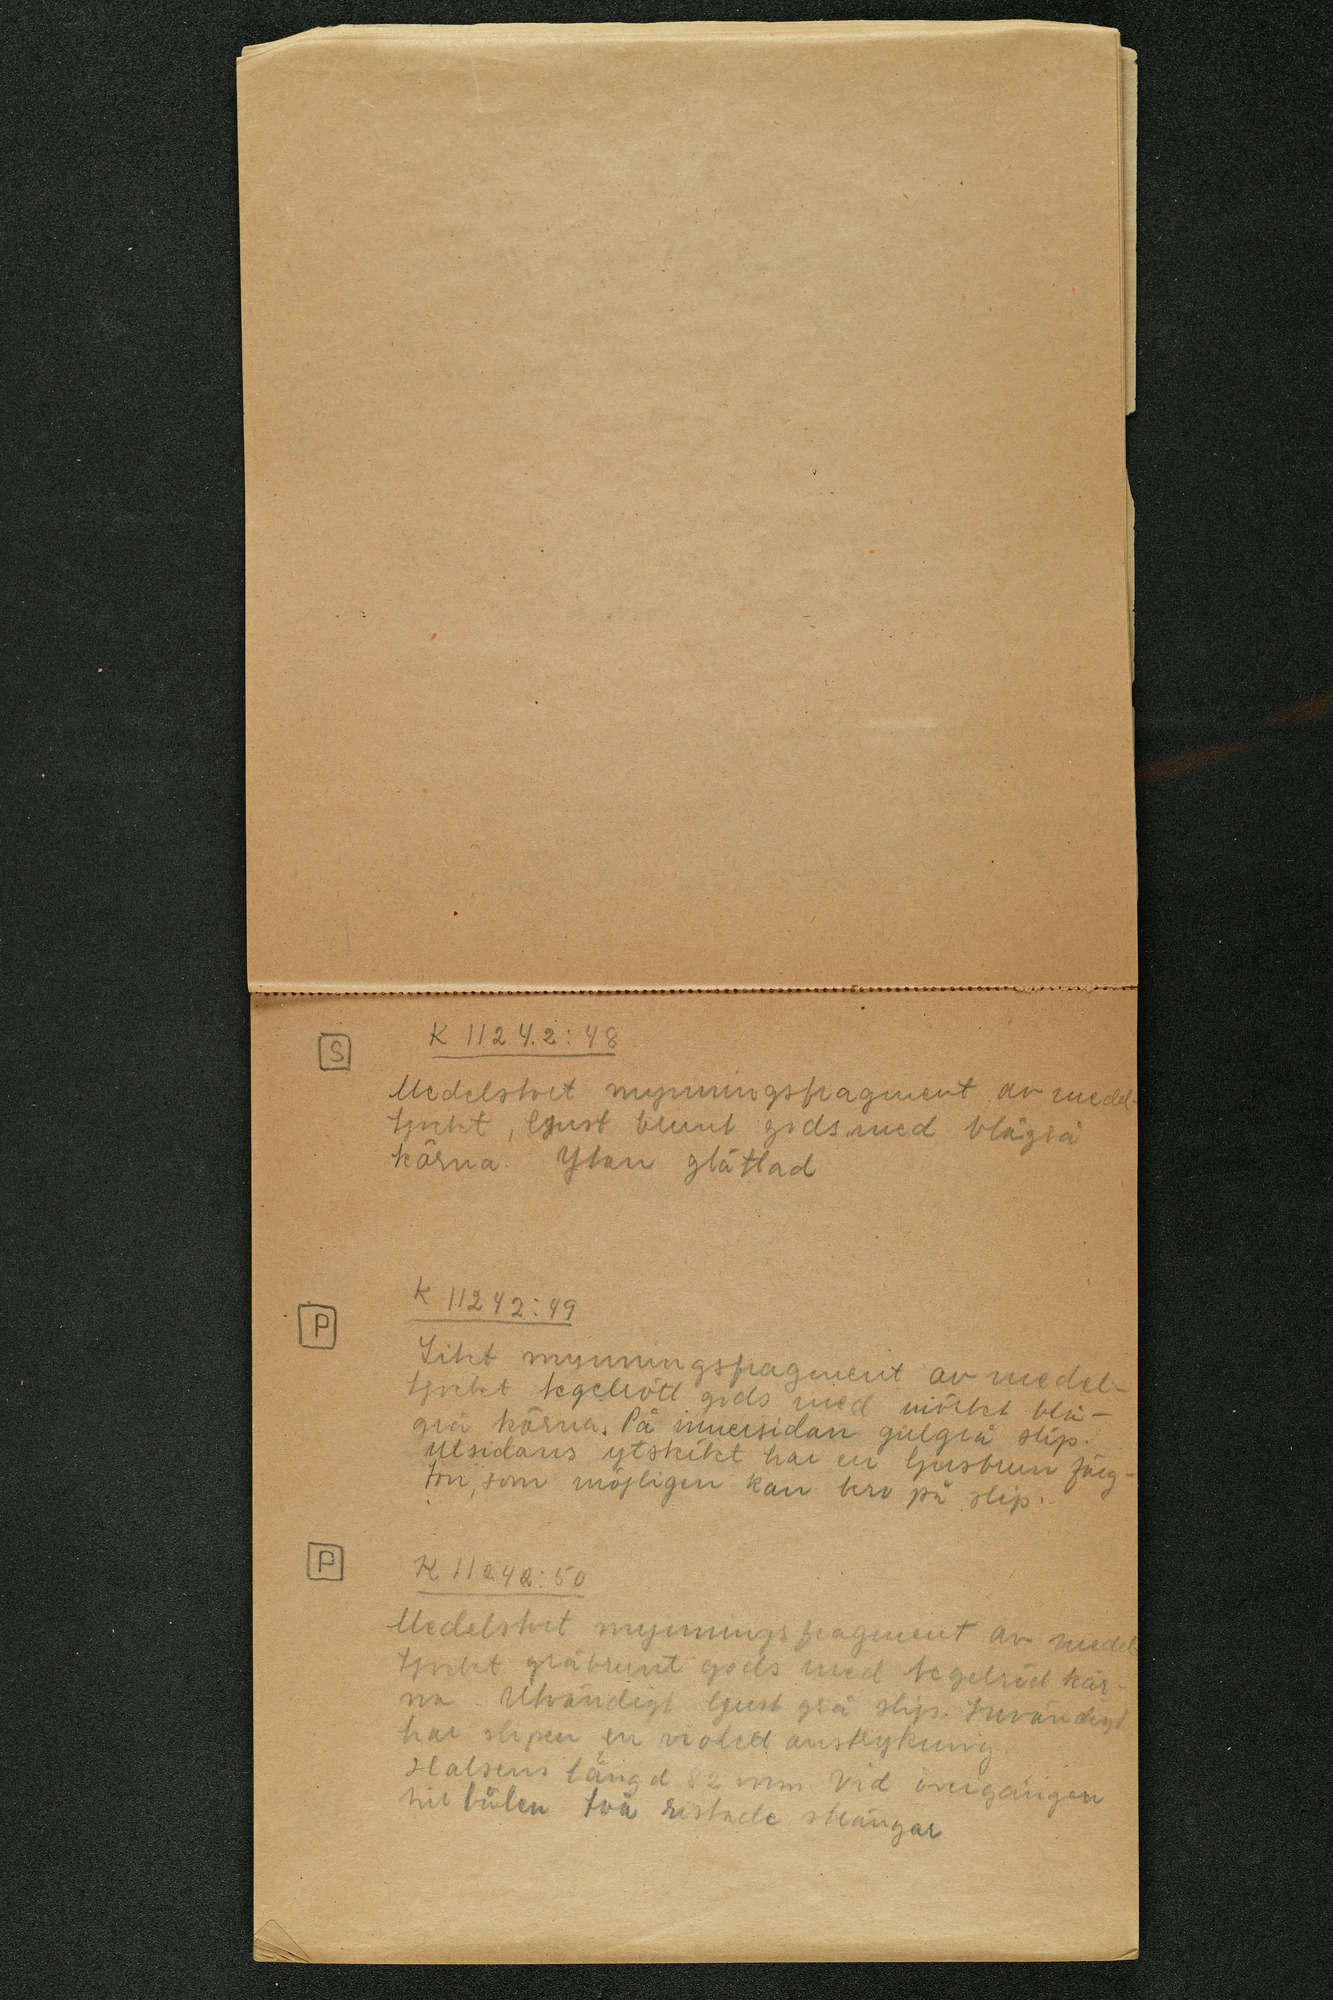 S K 11242:48
Medelstort mynningsfragment av medel-
tjockt, ljust brunt gods med blågrå
kärna. Ytan glättad
P K 11242:49
Litet mynningsfragment av medel-
tjockt tegelrött gods med mörkt blå-
grå kärna. På innersidan gulgrå slip.
Utsidans ytskikt har en ljusbrun färg-
ton, som möjligen kan bero på slip.
P K 11242:50
Medelstort mynningsfragment av medel
tjockt gråbrunt gods med tegelröd kär-
na. Utvändigt ljust grå slip. Invändigt
har slipen en violett anstrykning.
Halsens längd 82 mm. Vid övergången
till bålen två ristade strängar